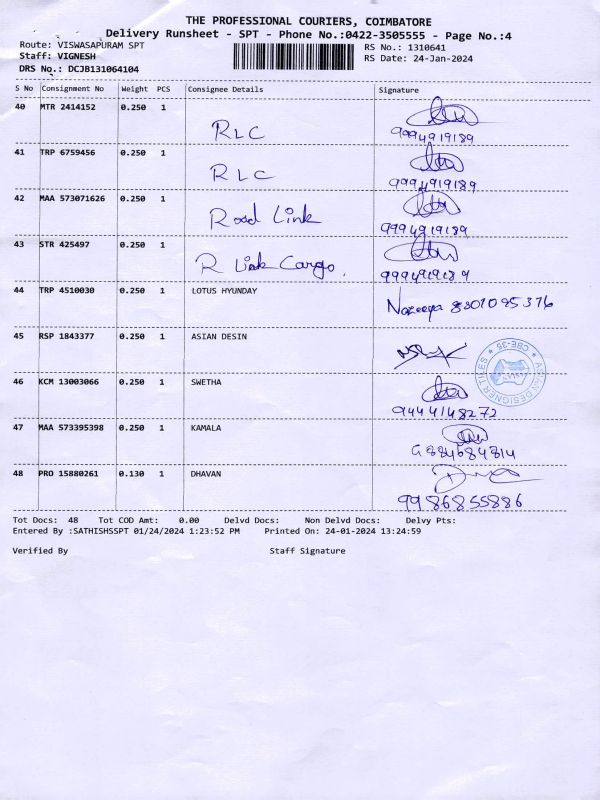 THE PROFESSIONAL COURIERS, COIMBATORE
Delivery Runsheet - SPT - Phone No.:0422-3505555 - Page No.:4
Route: VISWASAPURAM SPT RS No.: 1310641
Staff: VIGNESH RS Date: 24-Jan-2024
DRS No.: DCJB131064104
S No Consignment No Weight PCS Consignee Details Signature
40 MTR 2414152 0.250 1 RLC 9994919189
41 TRP 6759456 0.250 1 RLC 9994919189
42 MAA 573071626 0.250 1 Road Link 9994919189
43 STR 425497 0.250 1 R Link Cargo. 9994919189
44 TRP 4510030 0.250 1 LOTUS HYUNDAY
45 RSP 1843377 0.250 1 ASIAN DESIN
ASIAN DESIGNER TILES ★ CBE-35 ★
46 KCM 13003066 0.250 1 SWETHA 9444148272
47 MAA 573395398 0.250 1 KAMALA
48 PRO 15880261 0.130 1 DHAVAN 9986855886
Tot Docs: 48 Tot COD Amt: 0.00 Delvd Docs: Non Delvd Docs: Delvy Pts:
Entered By :SATHISHSSPT 01/24/2024 1:23:52 PM Printed On: 24-01-2024 13:24:59
Verified By Staff Signature